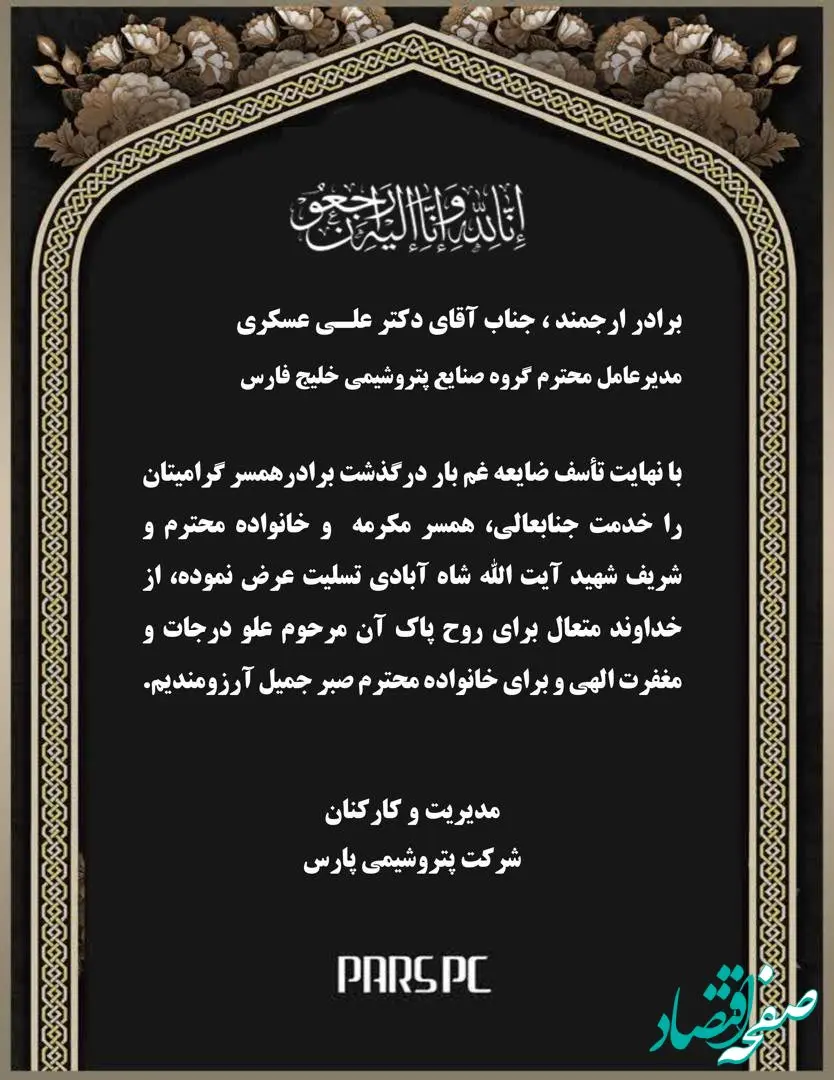 إنّا لله وإنّا إليه راجعون
برادر ارجمند ، جناب آقای دکتر علـــی عسکری
مدیرعامل محترم گروه صنایع پتروشیمی خلیج فارس
با نهایت تأسف ضایعه غم بار درگذشت برادرهمسر گرامیتان
را خدمت جنابعالی، همسر مکرمه و خانواده محترم و
شریف شهید آیت الله شاه آبادی تسلیت عرض نموده، از
خداوند متعال برای روح پاک آن مرحوم علو درجات و
مغفرت الهی و برای خانواده محترم صبر جمیل آرزومندیم.
مدیریت و کارکنان
شرکت پتروشیمی پارس
PARSPC
صفحه اقتصاد